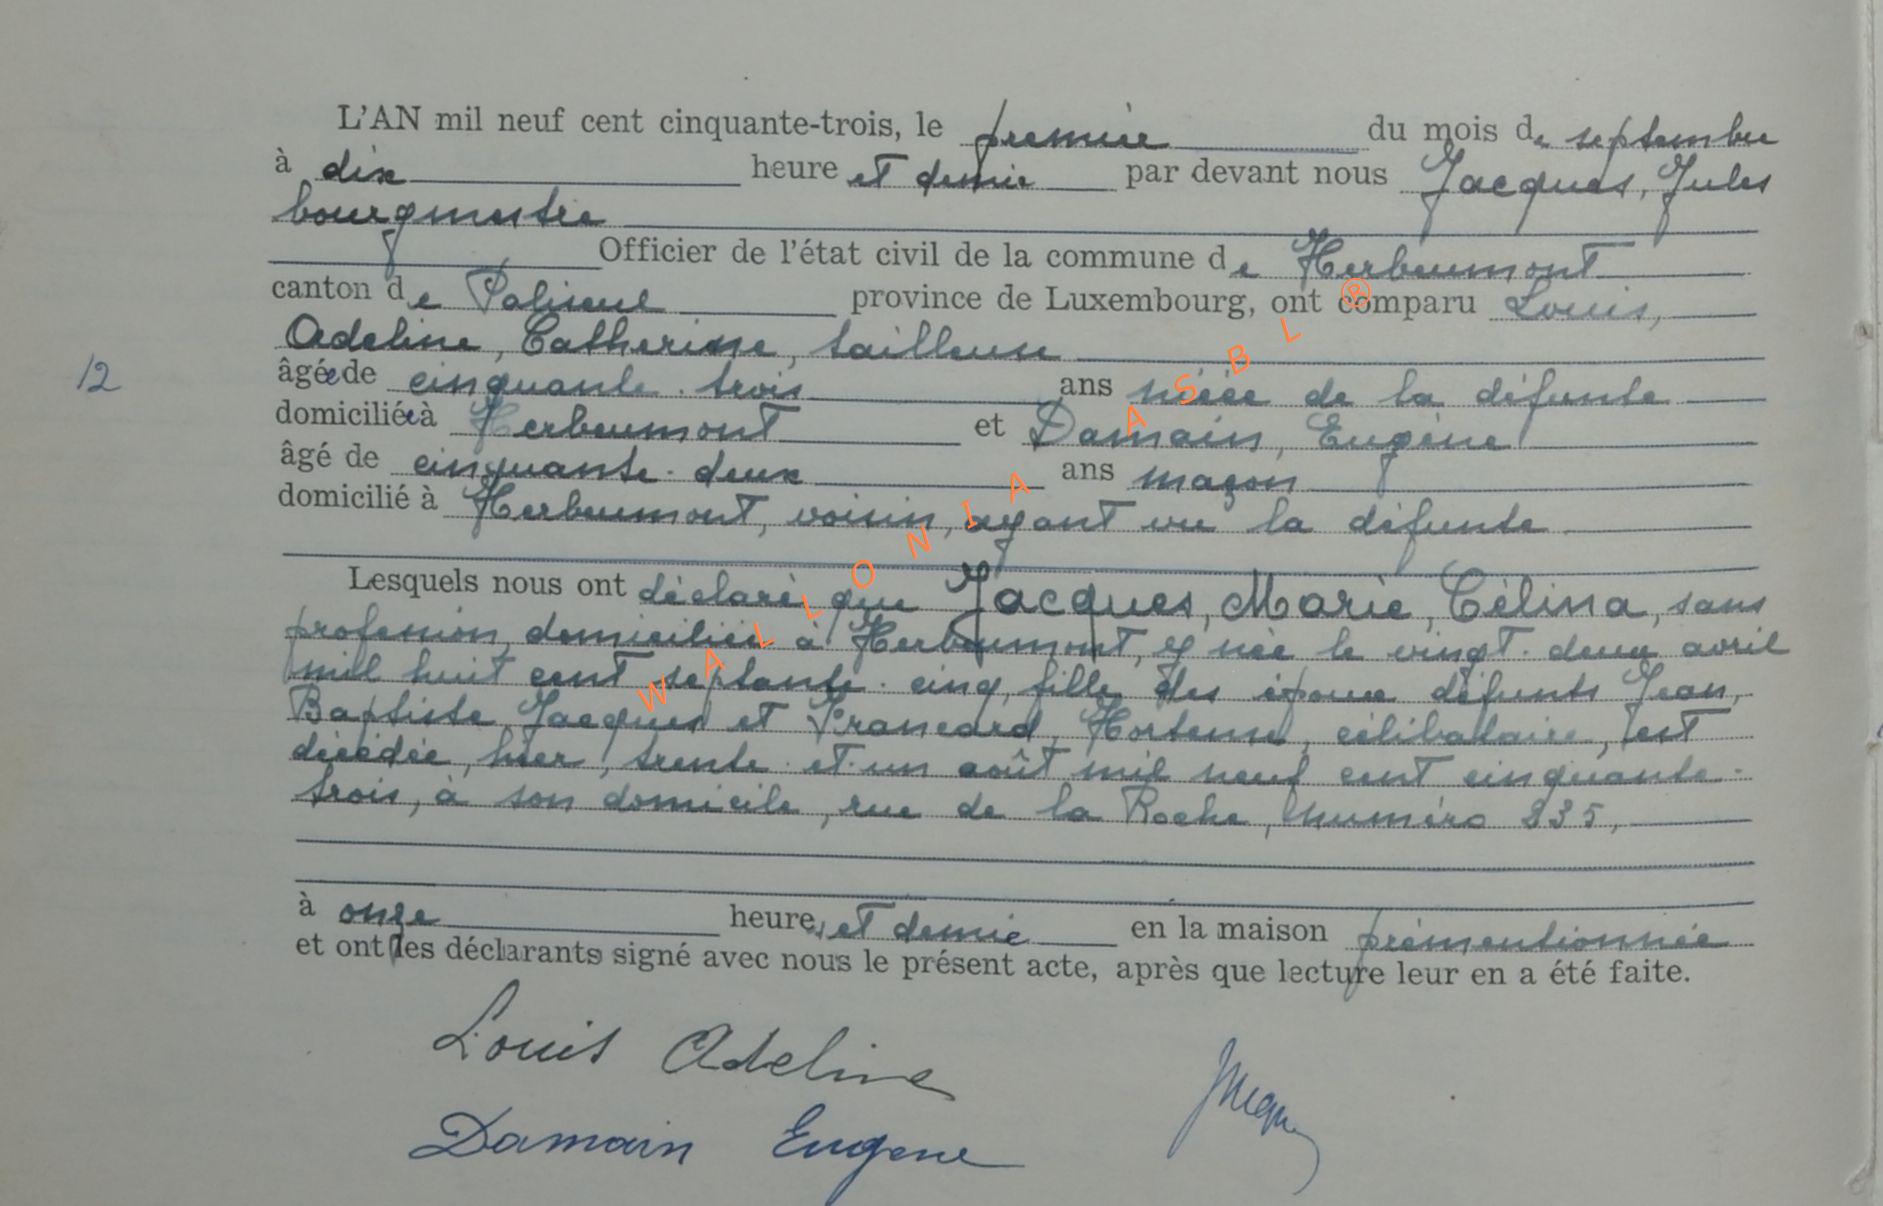 L'AN mil neuf cent cinquante-trois, le premier du mois de septembre
à dix heure et demie par devant nous Jacques, Jules
bourgmestre
Officier de l'état civil de la commune de Herbeumont
canton de Paliseul province de Luxembourg, ont comparu Louis,
Adeline, Catherine, tailleuse
12
âgée de cinquante-trois ans nièce de la défunte
domiciliée à Herbeumont et Damain, Eugène
âgé de cinquante-deux ans maçon
domicilié à Herbeumont, voisin, ayant vu la défunte
Lesquels nous ont déclaré que Jacques, Marie, Célina, sans
profession, domiciliée à Herbeumont, y née le vingt-deux avril
mil huit cent septante-cinq, fille des époux défunts Jean,
Baptiste Jacques et Francard, Hortense, célibataire, est
décédée, hier, trente-et-un août mil neuf cent cinquante-
trois, à son domicile, rue de la Roche, numéro 235,
à onze heures et demie en la maison prémentionnée
et ont les déclarants signé avec nous le présent acte, après que lecture leur en a été faite.
Louis Adeline
Jacques
Damain Eugene
WALLONIA ASBL ®